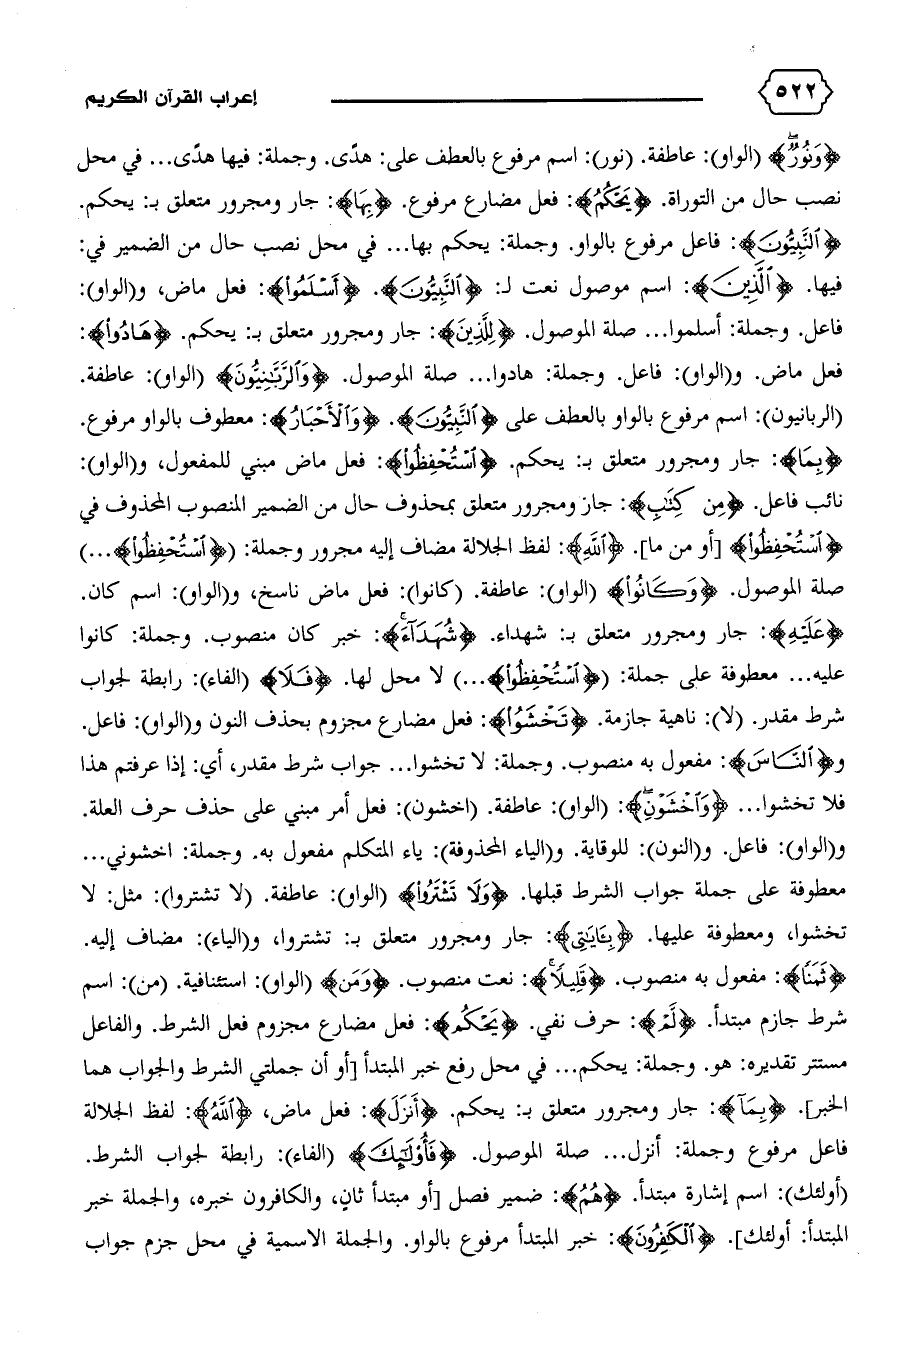 ٥٢٢ إعراب القرآن الكريم
﴿وَنُورٌ﴾ (الواو): عاطفة. (نور): اسم مرفوع بالعطف على: هدًى. وجملة: فيها هدًى... في محل
نصب حال من التوراة. ﴿يَحْكُمُ﴾: فعل مضارع مرفوع. ﴿بِهَا﴾: جار ومجرور متعلق بـ: يحكم.
﴿ٱلنَّبِيُّونَ﴾: فاعل مرفوع بالواو. وجملة: يحكم بها... في محل نصب حال من الضمير في:
فيها. ﴿ٱلَّذِينَ﴾: اسم موصول نعت لـ: ﴿ٱلنَّبِيُّونَ﴾. ﴿أَسْلَمُوا۟﴾: فعل ماض، و(الواو):
فاعل. وجملة: أسلموا... صلة الموصول. ﴿لِلَّذِينَ﴾: جار ومجرور متعلق بـ: يحكم. ﴿هَادُوا۟﴾:
فعل ماض. و(الواو): فاعل. وجملة: هادوا... صلة الموصول. ﴿وَٱلرَّبَّـٰنِيُّونَ﴾ (الواو): عاطفة.
(الربانيون): اسم مرفوع بالواو بالعطف على ﴿ٱلنَّبِيُّونَ﴾. ﴿وَٱلْأَحْبَارُ﴾: معطوف بالواو مرفوع.
﴿بِمَا﴾: جار ومجرور متعلق بـ: يحكم. ﴿ٱسْتُحْفِظُوا۟﴾: فعل ماض مبني للمفعول، و(الواو):
نائب فاعل. ﴿مِن كِتَـٰبِ﴾: جار ومجرور متعلق بمحذوف حال من الضمير المنصوب المحذوف في
﴿ٱسْتُحْفِظُوا۟﴾ [أو من ما]. ﴿ٱللَّهِ﴾: لفظ الجلالة مضاف إليه مجرور وجملة: (﴿ٱسْتُحْفِظُوا۟﴾...)
صلة الموصول. ﴿وَكَانُوا۟﴾ (الواو): عاطفة. (كانوا): فعل ماض ناسخ، و(الواو): اسم كان.
﴿عَلَيْهِ﴾: جار ومجرور متعلق بـ: شهداء. ﴿شُهَدَآءَ﴾: خبر كان منصوب. وجملة: كانوا
عليه... معطوفة على جملة: (﴿ٱسْتُحْفِظُوا۟﴾...) لا محل لها. ﴿فَلَا﴾ (الفاء): رابطة لجواب
شرط مقدر. (لا): ناهية جازمة. ﴿تَخْشَوُا۟﴾: فعل مضارع مجزوم بحذف النون و(الواو): فاعل.
و﴿ٱلنَّاسَ﴾: مفعول به منصوب. وجملة: لا تخشوا... جواب شرط مقدر، أي: إذا عرفتم هذا
فلا تخشوا... ﴿وَٱخْشَوْنِ﴾: (الواو): عاطفة. (اخشون): فعل أمر مبني على حذف حرف العلة.
و(الواو): فاعل. و(النون): للوقاية. و(الياء المحذوفة): ياء المتكلم مفعول به. وجملة: اخشوني...
معطوفة على جملة جواب الشرط قبلها. ﴿وَلَا تَشْتَرُوا۟﴾ (الواو): عاطفة. (لا تشتروا): مثل: لا
تخشوا، ومعطوفة عليها. ﴿بِـَٔايَـٰتِى﴾: جار ومجرور متعلق بـ: تشتروا، و(الياء): مضاف إليه.
﴿ثَمَنًا﴾: مفعول به منصوب. ﴿قَلِيلًا﴾: نعت منصوب. ﴿وَمَن﴾ (الواو): استئنافية. (من): اسم
شرط جازم مبتدأ. ﴿لَّمْ﴾: حرف نفي. ﴿يَحْكُم﴾: فعل مضارع مجزوم فعل الشرط. والفاعل
مستتر تقديره: هو. وجملة: يحكم... في محل رفع خبر المبتدأ [أو أن جملتي الشرط والجواب هما
الخبر]. ﴿بِمَآ﴾: جار ومجرور متعلق بـ: يحكم. ﴿أَنزَلَ﴾: فعل ماض، ﴿ٱللَّهُ﴾: لفظ الجلالة
فاعل مرفوع وجملة: أنزل... صلة الموصول. ﴿فَأُو۟لَـٰٓئِكَ﴾ (الفاء): رابطة لجواب الشرط.
(أولئك): اسم إشارة مبتدأ. ﴿هُمُ﴾: ضمير فصل [أو مبتدأ ثانٍ، والكافرون خبره، والجملة خبر
المبتدأ: أولئك]. ﴿ٱلْكَـٰفِرُونَ﴾: خبر المبتدأ مرفوع بالواو. والجملة الاسمية في محل جزم جواب